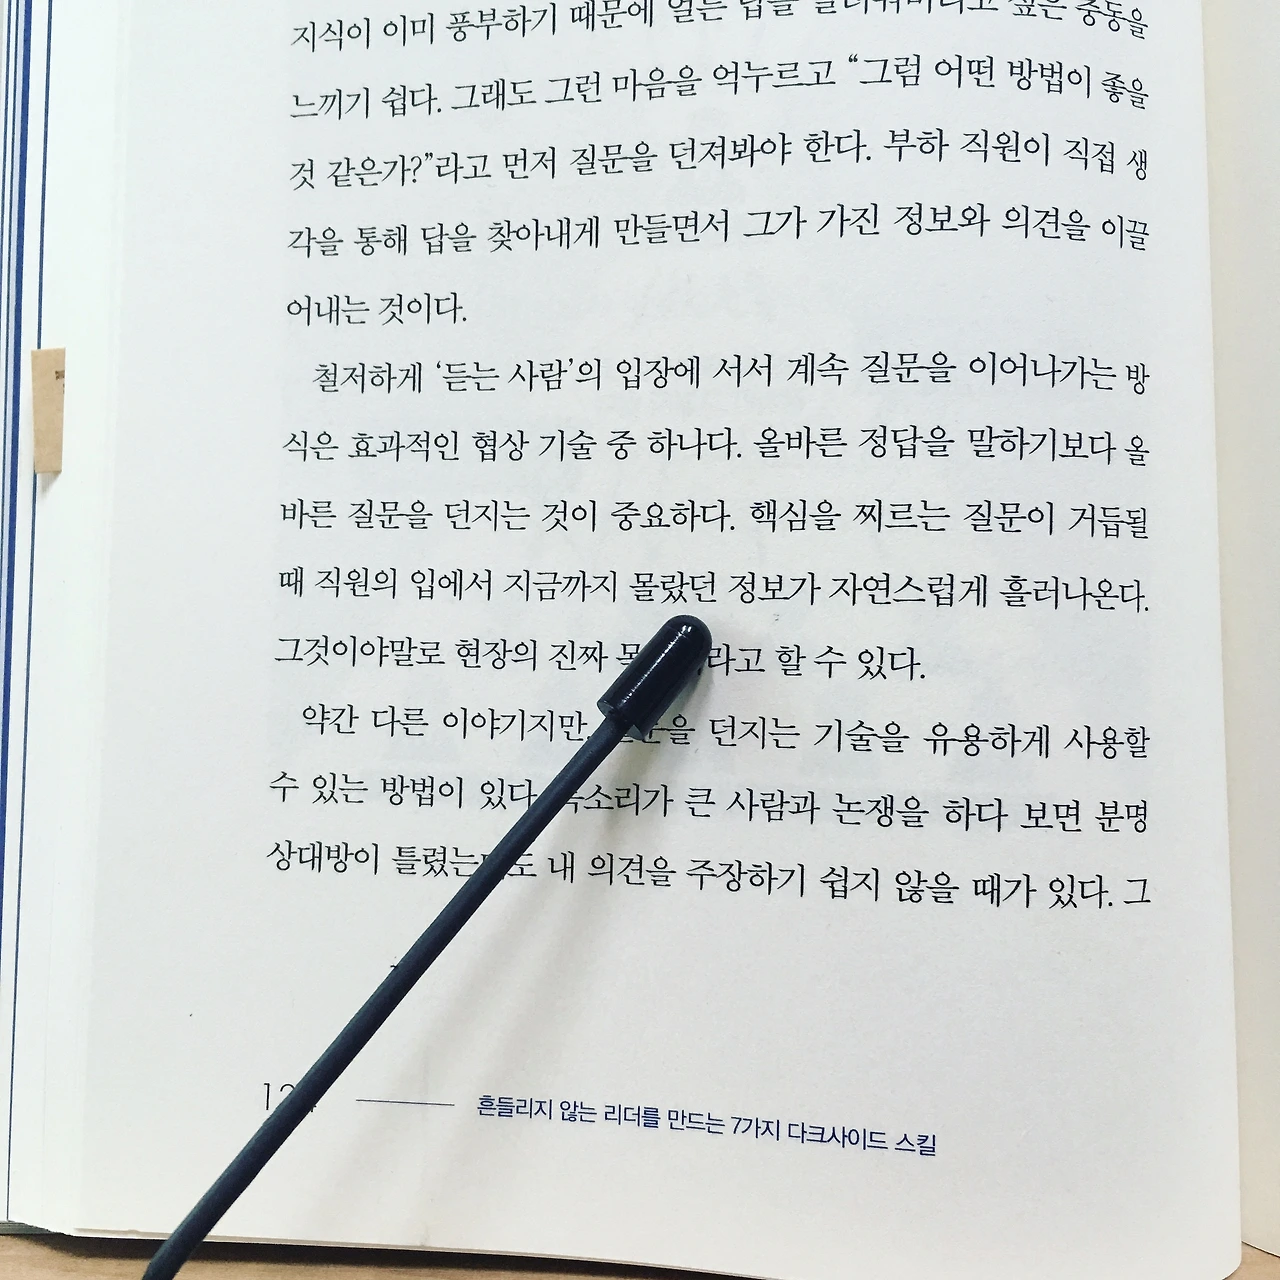 지식이 이미 풍부하기 때문에 얼른 답을 싶은 충동을
느끼기 쉽다. 그래도 그런 마음을 억누르고 “그럼 어떤 방법이 좋을
것 같은가?”라고 먼저 질문을 던져봐야 한다. 부하 직원이 직접 생
각을 통해 답을 찾아내게 만들면서 그가 가진 정보와 의견을 이끌
어내는 것이다.
철저하게 ‘듣는 사람’의 입장에 서서 계속 질문을 이어나가는 방
식은 효과적인 협상 기술 중 하나다. 올바른 정답을 말하기보다 올
바른 질문을 던지는 것이 중요하다. 핵심을 찌르는 질문이 거듭될
때 직원의 입에서 지금까지 몰랐던 정보가 자연스럽게 흘러나온다.
그것이야말로 현장의 진짜 할 수 있다.
약간 다른 이야기지만, 던지는 기술을 유용하게 사용할
수 있는 방법이 있다. 목소리가 큰 사람과 논쟁을 하다 보면 분명
상대방이 틀렸는데도 내 의견을 주장하기 쉽지 않을 때가 있다. 그
흔들리지 않는 리더를 만드는 7가지 다크사이드 스킬